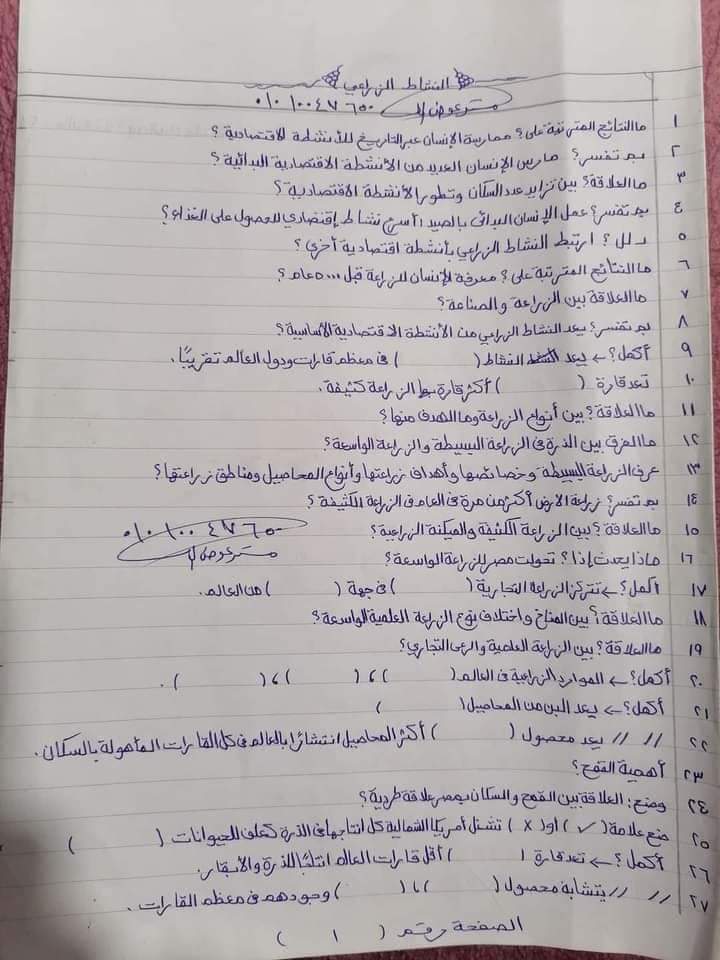 النشاط الزراعي
مستر عوض ٠١٠١٠٠٤٧٦٥٠
١ ما النتائج المترتبة على؟ ممارسة الإنسان عبر التاريخ للأنشطة الاقتصادية؟
٢ بم تفسر؟ مارس الإنسان العديد من الأنشطة الاقتصادية البدائية؟
٣ ما العلاقة؟ بين تزايد عدد السكان وتطور الأنشطة الاقتصادية؟
٤ بم تفسر؟ عمل الإنسان البدائي بالصيد أسرع نشاط إقتصادي للحصول على الغذاء؟
٥ دلل؟ ارتبط النشاط الزراعي بأنشطة اقتصادية أخري؟
٦ ما النتائج المترتبة على؟ معرفة الإنسان للزراعة قبل ٥٠٠٠ عام؟
٧ ما العلاقة بين الزراعة والصناعة؟
٨ بم تفسر؟ يعد النشاط الزراعي من الأنشطة الاقتصادية الأساسية؟
٩ أكمل؟ ← يعد النشاط ( ) في معظم قارات ودول العالم تقريبًا.
١٠ تعد قارة ( ) أكثر قارة بها الزراعة كثيفة.
١١ ما العلاقة؟ بين أنواع الزراعة وما الهدف منها؟
١٢ ما الفرق بين الذرة في الزراعة البسيطة والزراعة الواسعة؟
١٣ عرف الزراعة البسيطة وخصائصها وأهداف زراعتها وأنواع المحاصيل ومناطق زراعتها؟
١٤ بم تفسر؟ زراعة الأرض أكثر من مرة في العام في الزراعة الكثيفة؟
١٥ ما العلاقة؟ بين الزراعة الكثيفة والميكنة الزراعية؟
٠١٠١٠٠٤٧٦٥٠
مستر عوض
١٦ ماذا يحدث إذا؟ تحولت مصر للزراعة الواسعة؟
١٧ أكمل؟ ← تتركز الزراعة التجارية ( ) في جهة ( ) من العالم.
١٨ ما العلاقة؟ بين المناخ واختلاف نوع الزراعة العلمية الواسعة؟
١٩ ما العلاقة؟ بين الزراعة العلمية والرعي التجاري؟
٢٠ أكمل؟ ← الموارد الزراعية في العالم ( )، ( )، ( ).
٢١ أكمل؟ ← يعد البن من المحاصيل ( )
٢٢ // // يعد محصول ( ) أكثر المحاصيل انتشارًا بالعالم في كل القارات المأهولة بالسكان.
٢٣ أهمية القمح؟
٢٤ وضح: العلاقة بين القمح والسكان بمصر علاقة طردية؟
٢٥ ضع علامة (✓) أو (x) تستغل أمريكا الشمالية كل انتاجها في الذرة كعلف للحيوانات ( )
٢٦ أكمل؟ ← تعد قارة ( ) أقل قارات العالم انتاجًا للذرة والأبقار.
٢٧ // // يتشابة محصول ( )، ( ) وجودهم في معظم القارات.
الصفحة رقم ( ١ )